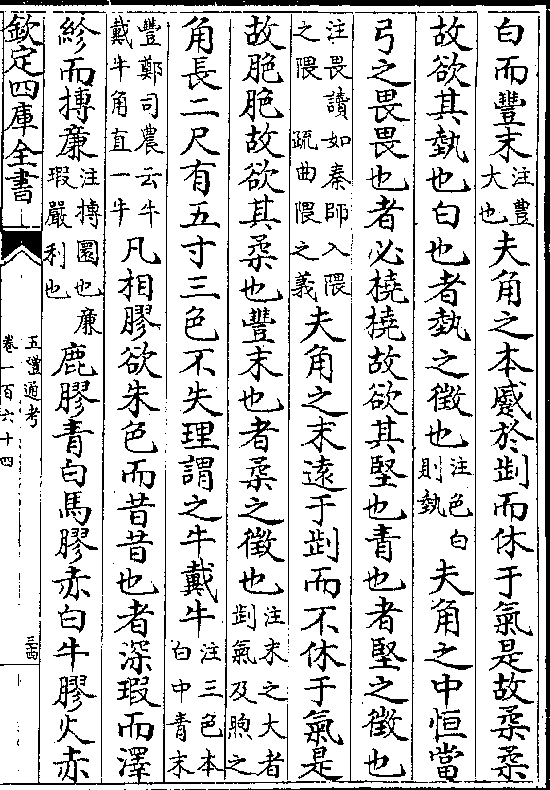 白而豐末注豐大也夫角之本蹙於㓣而休于氣是故柔柔
故欲其埶也白也者埶之徵也注色白則埶夫角之中恒當
弓之畏畏也者必橈橈故欲其堅也青也者堅之徵也
注畏讀如秦師入隈之隈疏曲隈之義夫角之末逺于㓣而不休于氣是
故脃脃故欲其柔也豐末也者柔之徵也注末之大者㓣氣及煦之
角長二尺有五寸三色不失理謂之牛戴牛注三色本白中青末
豐鄭司農云牛戴牛角直一牛凡相膠欲朱色而昔昔也者深瑕而澤
紾而摶廉注摶圜也廉瑕嚴利也鹿膠青白馬膠赤白牛膠火赤
欽定四庫全書
五禮通考
卷一百六十四
三西